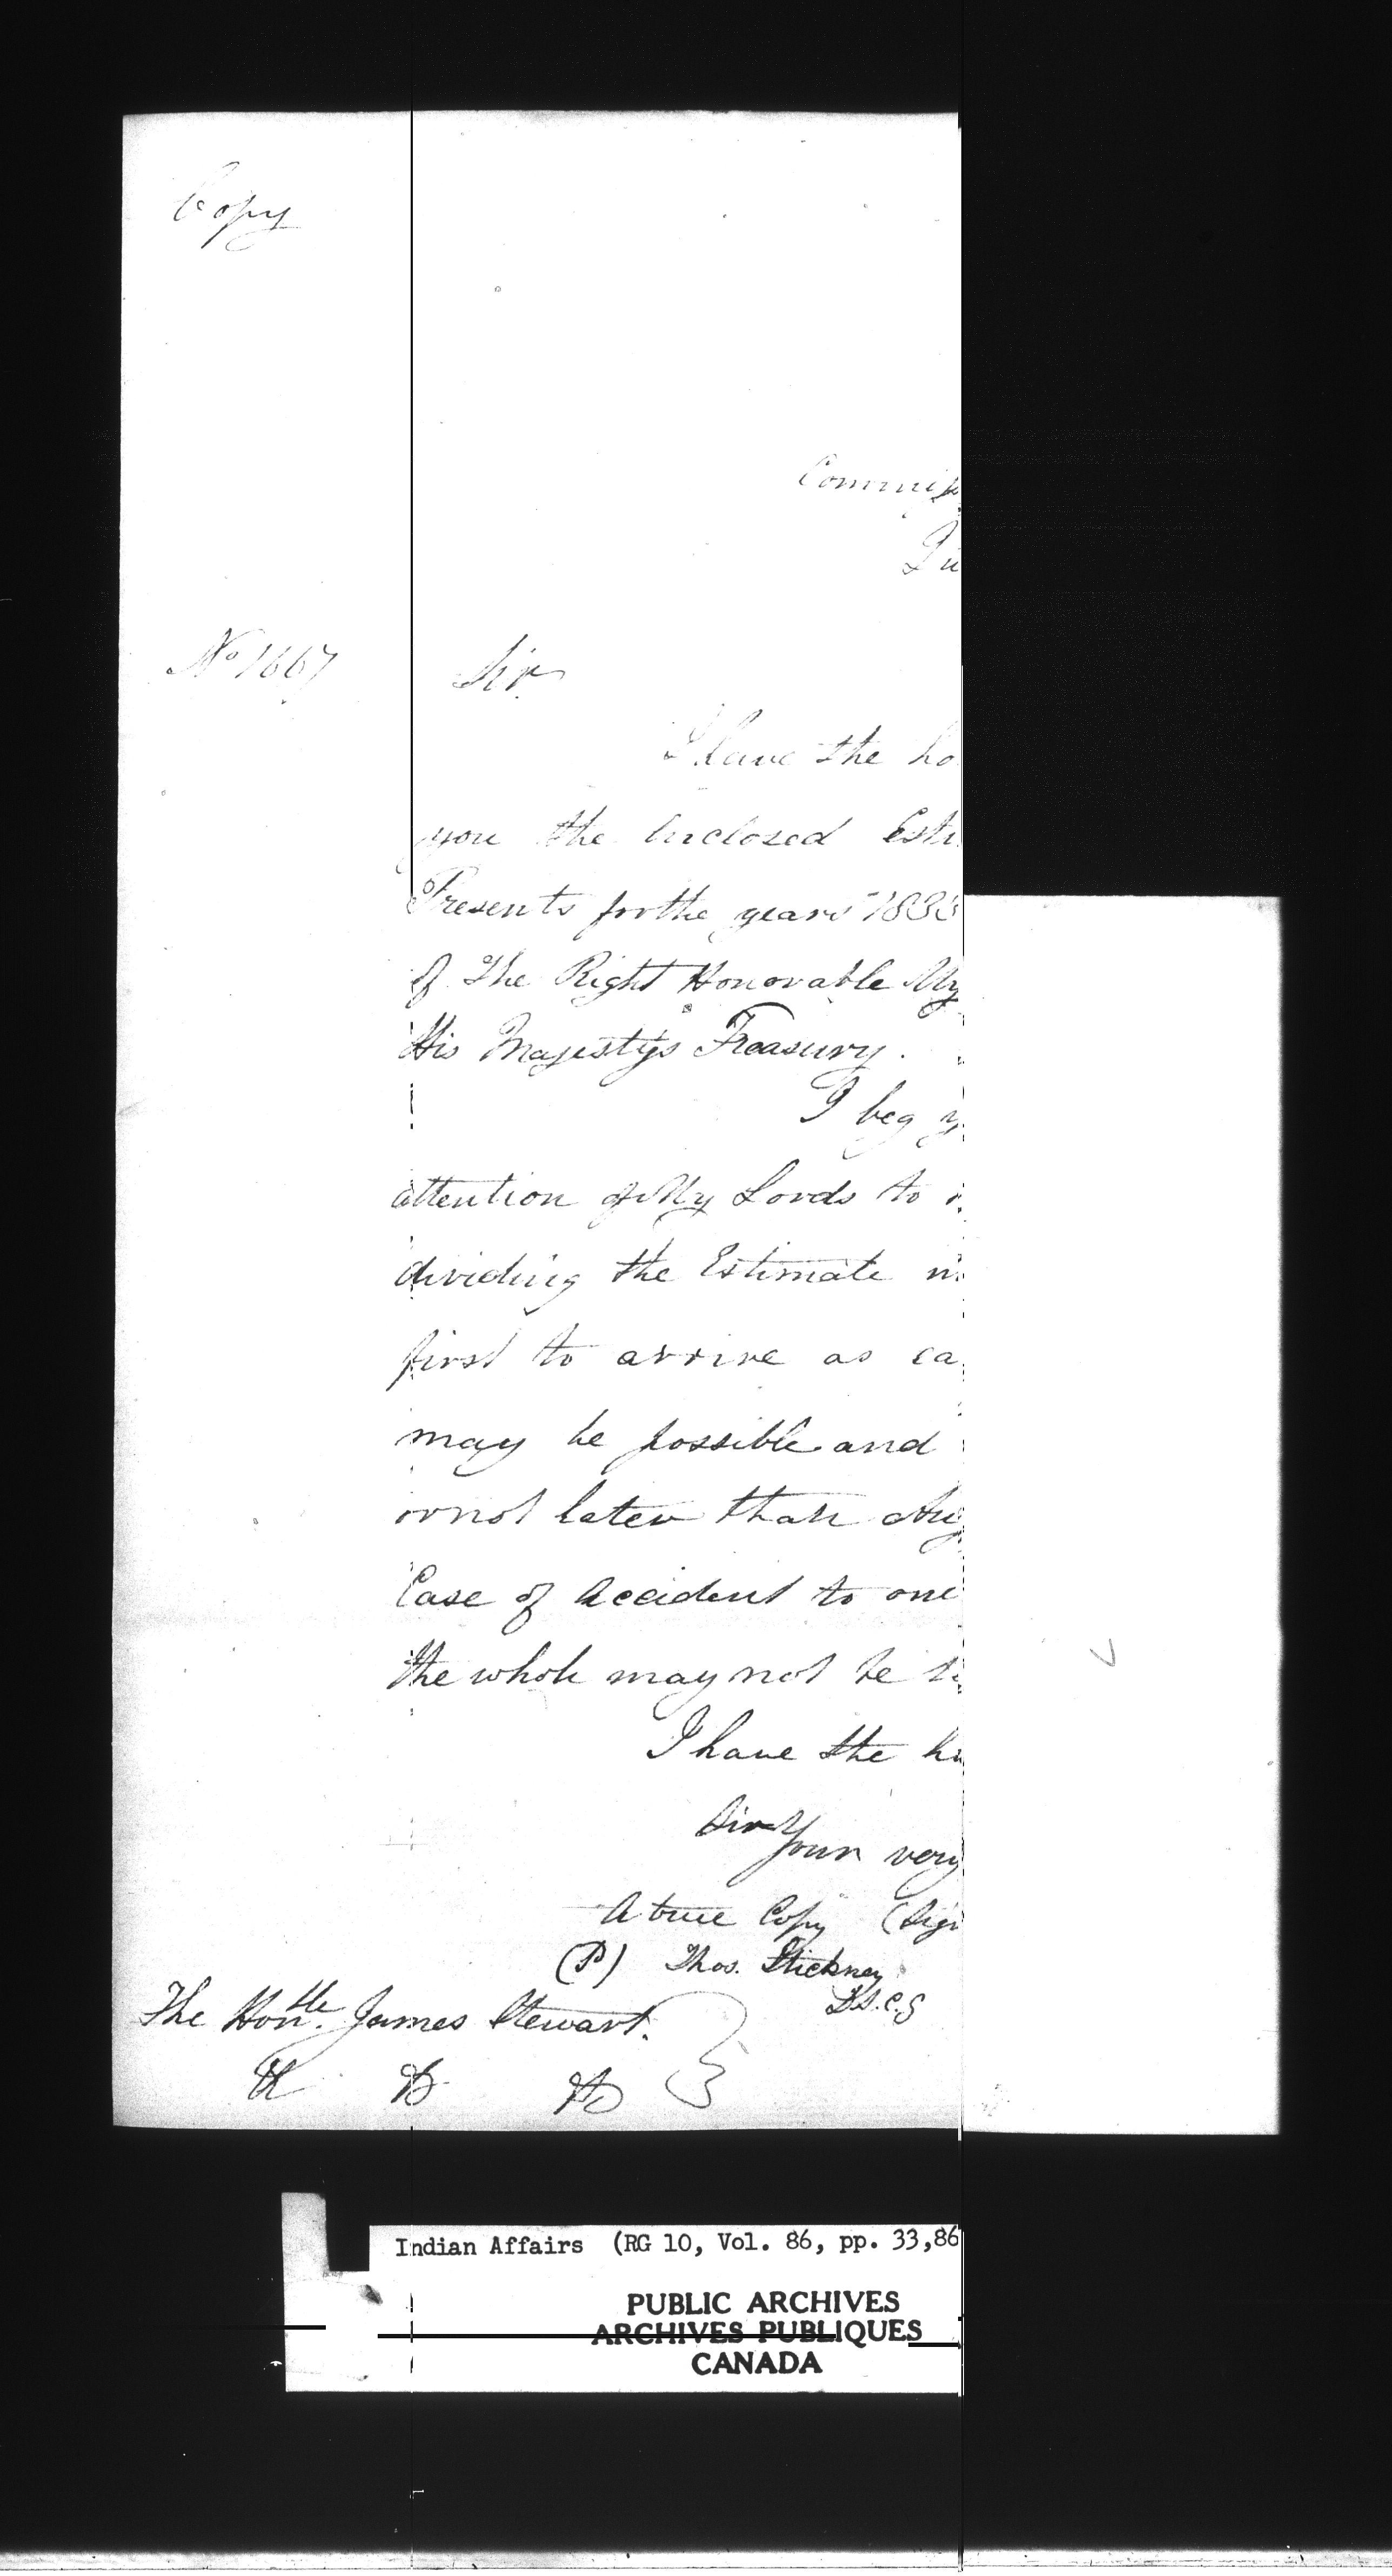 Copy
Commiss
Qu
No 1667
Sir
I have the ho
you the Enclosed Esti
Presents for the years 1833
of The Right Honorable My
His Majestys Treasury.
I beg y
attention of My Lords to
dividing the Estimate in
first to arrive as ea
may be possible and
or not later than Aug
Case of Accident to one
the whole may not be
I have the ho
Sir
Your very
A true Copy (Sign
(P) Thos. Stickney
D.A.C.G
The Honble. James Stewart.
Indian Affairs (RG 10, Vol. 86, pp. 33,86
PUBLIC ARCHIVES
ARCHIVES PUBLIQUES
CANADA